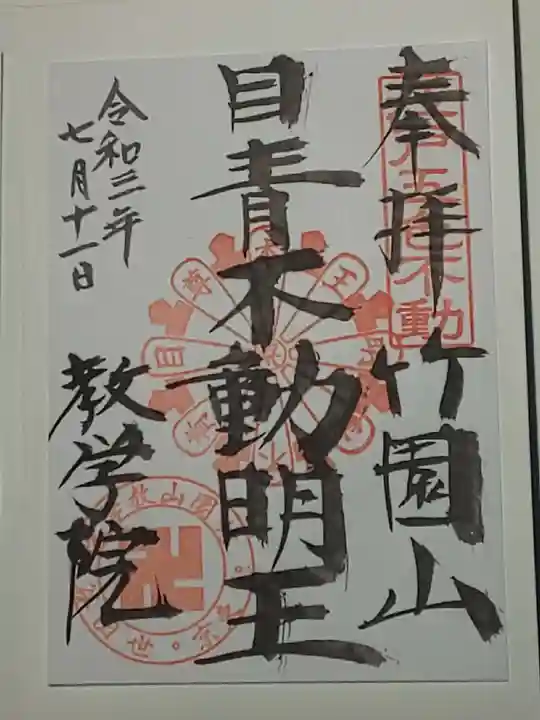 奉拝 竹園山
江戸五色不動
目青不動明王
令和三年
七月十一日
教学院